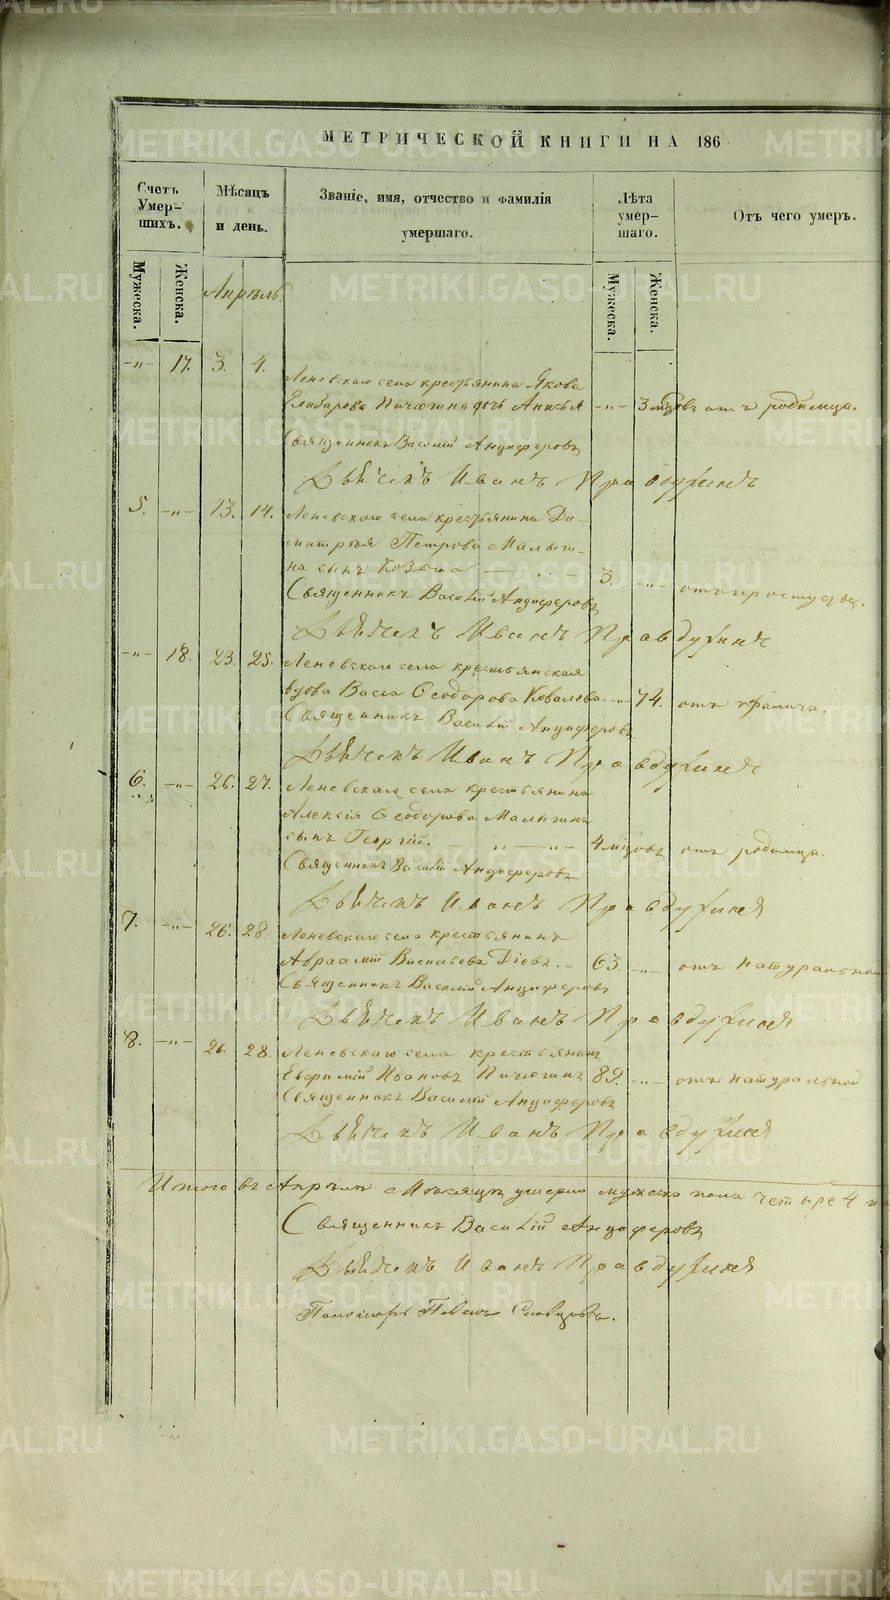 МЕТРИЧЕСКОЙ КНИГИ НА 186
Счетъ Умер-шихъ.
Мѣсяцъ и день.
Званіе, имя, отчество и фамилія умершаго.
Лѣта умер-шаго.
Отъ чего умеръ.
Мужеска.
Женска.
Мужеска.
Женска.
Апрѣль
-"- 17. 3. 4.
Леневскаго села крестьянина Якова
Елизарова Пичюгина дочь Анисья -"- 3 мѣсцовъ отъ родимца.
Священникъ Василій Анциферовъ
Дьячекъ Иванъ Правдухинъ
5. -"- 13. 14. Леневскаго села крестьянина Ди-
митрія Петрова Малыги-
на сынъ Козьма 3. -"- отъ простуды.
Священникъ Василій Анциферовъ
Дьячекъ Иванъ Правдухинъ
-"- 18. 23. 25. Леневскаго села крестьянская
вдова Васса Ѳеодорова Ковалева. -"- 74. отъ
Священникъ Василій Анциферовъ
Дьячекъ Иванъ Правдухинъ
6. -"- 26. 27. Леневскаго села крестьянина
Алексія Ѳеодорова Малыгина
сынъ Георгій. 4 мѣсцовъ отъ родимца.
Священникъ Василій Анциферовъ
Дьячекъ Иванъ Правдухинъ
7. -"- 26. 28. Леневскаго села крестьянинъ
Авраамій Васильевъ Діевъ. 63. -"- отъ натуральной
Священникъ Василій Анциферовъ
Дьячекъ Иванъ Правдухинъ
8. -"- 26. 28. Леневскаго села крестьянинъ
Евфимій Ивановъ Пичюгинъ 89. -"- отъ натуральной
Священникъ Василій Анциферовъ
Дьячекъ Иванъ Правдухинъ
Итого въ Апрѣлѣ мѣсяцѣ умерло мужеска пола четыре 4
Священникъ Василій Анциферовъ
Дьячекъ Иванъ Правдухинъ
Пономарь Павелъ Словцовъ.
METRIKI.GASO-URAL.RU